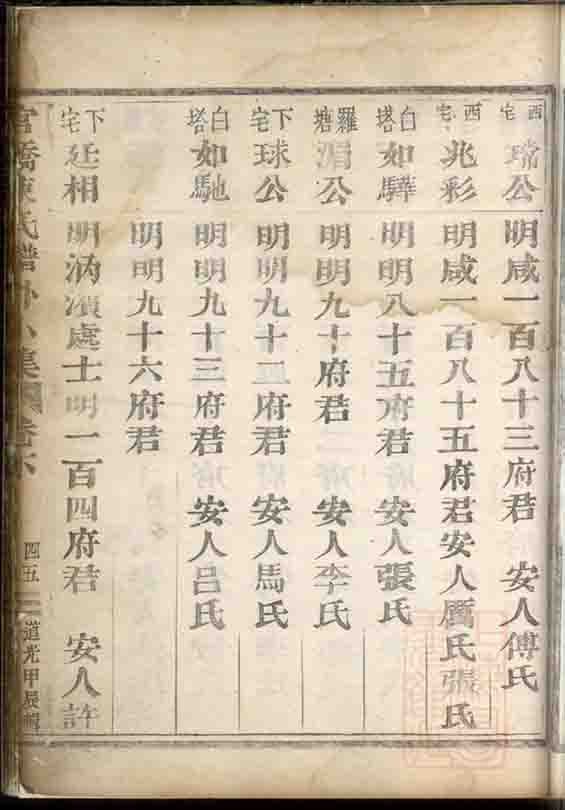 西宅 瑺公 明咸一百八十三府君 安人傅氏
西宅 兆彩 明咸一百八十五府君安人厲氏張氏
白塔 如驊 明明八十五府君 安人張氏
羅塘 湄公 明明九十府君 安人李氏
下宅 球公 明明九十二府君 安人馬氏
白塔 如馳 明明九十三府君 安人呂氏
明明九十六府君
下宅 廷相 明 濱處士明一百四府君 安人許
宮橋陳氏譜 集 卷 四五 道光甲辰輯